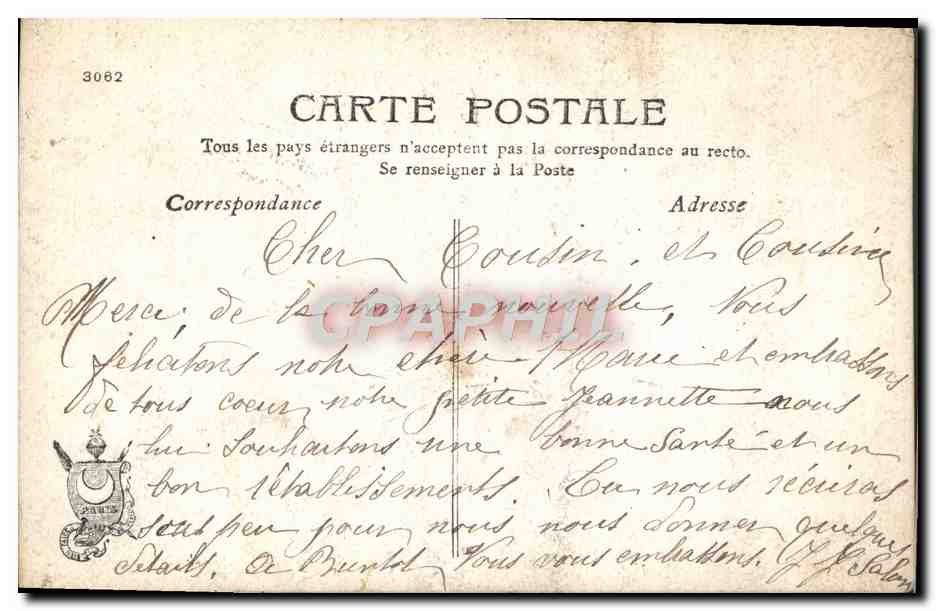 3062
CARTE POSTALE
Tous les pays étrangers n'acceptent pas la correspondance au recto.
Se renseigner à la Poste
Correspondance
Adresse
Cher Cousin, et Cousine
Merci, de la bonne nouvelle, Nous
felicitons notre chère Marie et embrassons
de tous coeur notre petite Jeannette nous
lui souhaitons une bonne Santé et un
bon rétablissements. Tu nous récriras
sout peu pour nous donner quelques
details. a Bientot, Vous vous embrassons.
CPAPHIL
PARIS